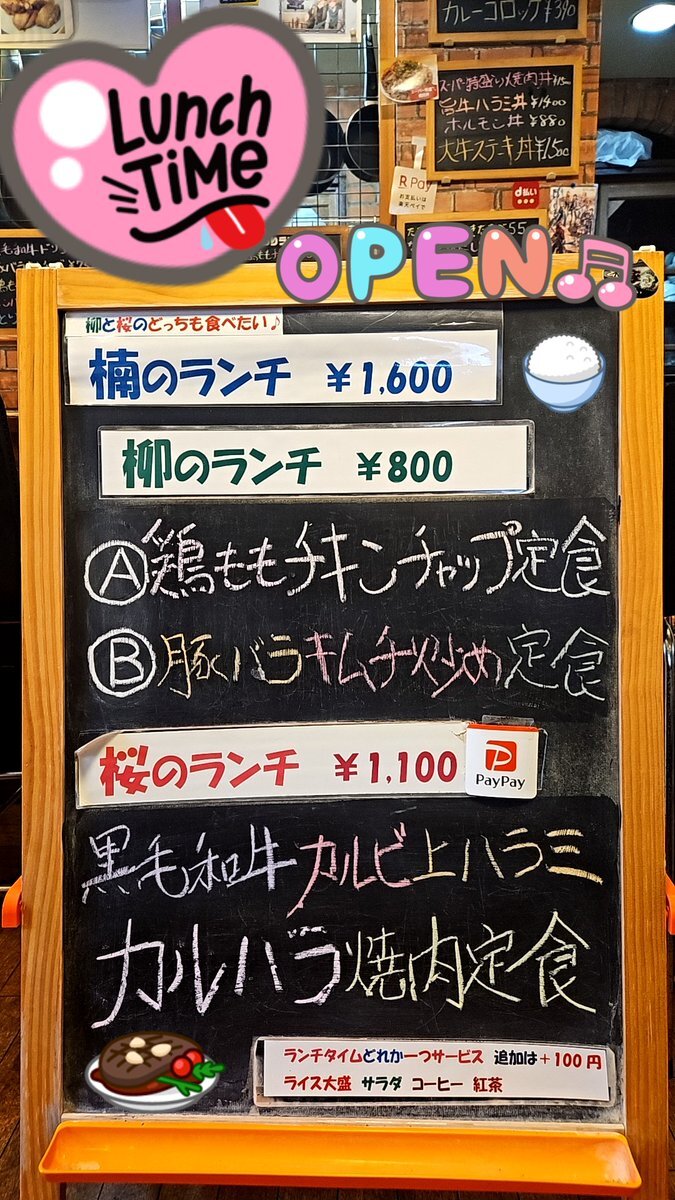 カレーコロッケ¥390
スーパー特盛り焼肉丼¥1500
¥1400
ホルモン丼 ¥880
大牛ステーキ丼¥1,500
R Pay
お支払いは
楽天ペイで
d払い
Lunch
TIME
OPEN
柳と桜のどっちも食べたい♪
楠のランチ ¥1,600
柳のランチ ¥800
Ⓐ鶏ももチキンチャップ定食
Ⓑ豚バラキムチ炒め定食
桜のランチ ¥1,100
PayPay
黒毛和牛カルビ上ハラミ
カルバラ焼肉定食
ランチタイムどれか一つサービス 追加は+100円
ライス大盛 サラダ コーヒー 紅茶